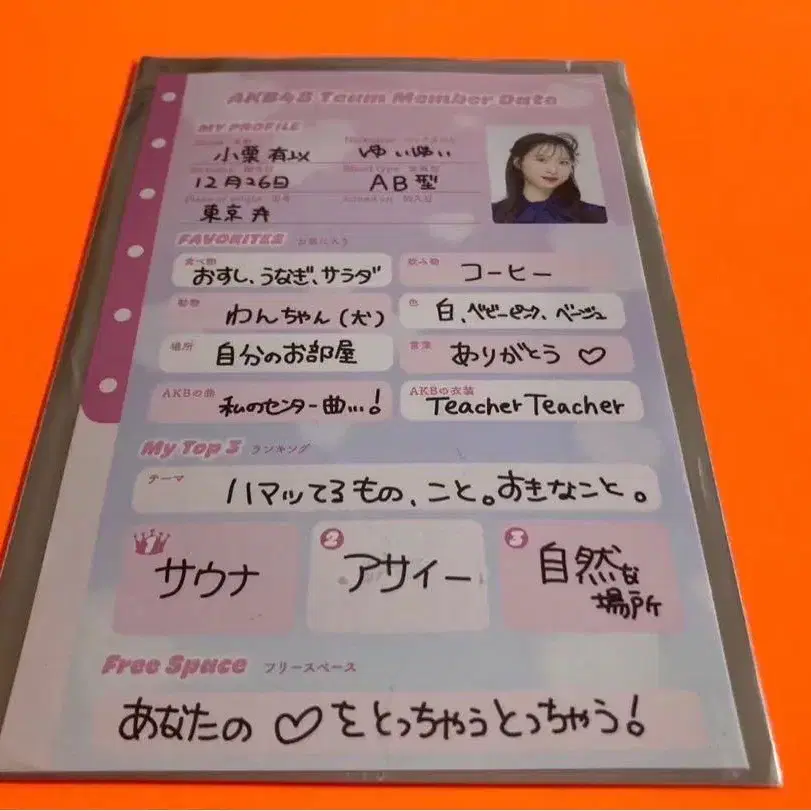 AKB48 Team Member Data
MY PROFILE
小栗有以 ゆいゆい
12月26日 AB型
東京
FAVORITES お気に入り
食べ物 おすし、うなぎ、サラダ 飲み物 コーヒー
動物 わんちゃん(犬) 色 白、ベビーピンク、ベージュ
場所 自分のお部屋 言葉 ありがとう♡
AKBの曲 私のセンター曲...! AKBの衣装 Teacher Teacher
My Top 3 ランキング
テーマ ハマッてるもの、こと。すきなこと。
1 サウナ 2 アサイー 3 自然な場所
Free Space フリースペース
あなたの♡をとっちゃうとっちゃう!